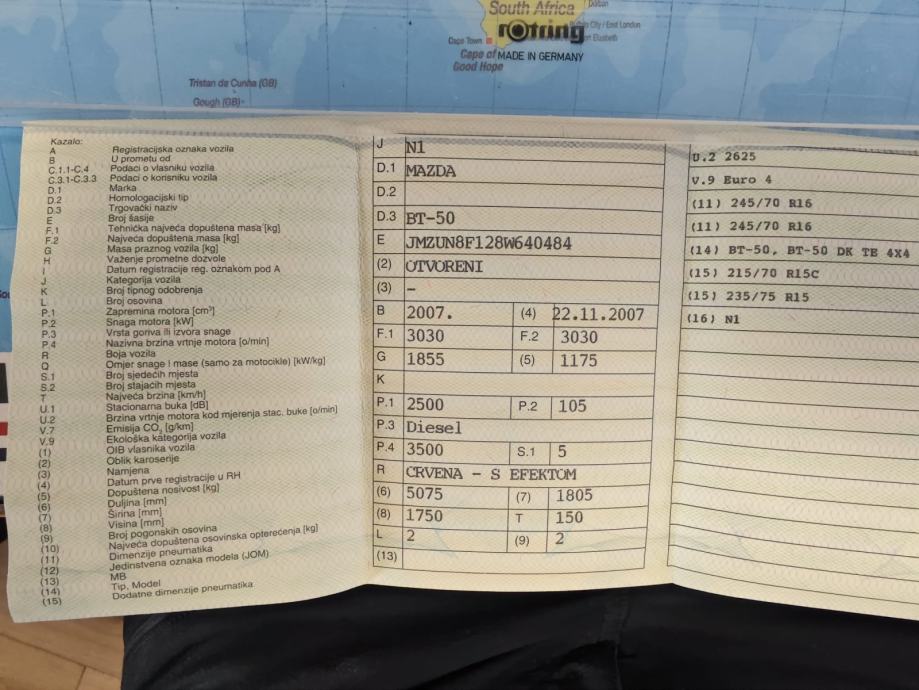 South Africa
Durban
rotring
City / East London
Cape Town
rt Elizabeth
Cape of MADE IN GERMANY
Good Hope
Tristan da Cunha (GB)
Gough (GB)
Kazalo:
A Registracijska oznaka vozila
B U prometu od
C.1.1-C.4 Podaci o vlasniku vozila
C.3.1-C.3.3 Podaci o korisniku vozila
D.1 Marka
D.2 Homologacijski tip
D.3 Trgovački naziv
E Broj šasije
F.1 Tehnička najveća dopuštena masa [kg]
F.2 Najveća dopuštena masa [kg]
G Masa praznog vozila [kg]
H Važenje prometne dozvole
I Datum registracije reg. oznakom pod A
J Kategorija vozila
K Broj tipnog odobrenja
L Broj osovina
P.1 Zapremina motora [cm³]
P.2 Snaga motora [kW]
P.3 Vrsta goriva ili izvora snage
P.4 Nazivna brzina vrtnje motora [o/min]
R Boja vozila
Q Omjer snage i mase (samo za motocikle) [kW/kg]
S.1 Broj sjedećih mjesta
S.2 Broj stajaćih mjesta
T Najveća brzina [km/h]
U.1 Stacionarna buka [dB]
U.2 Brzina vrtnje motora kod mjerenja stac. buke [o/min]
V.7 Emisija CO₂ [g/km]
V.9 Ekološka kategorija vozila
(1) OIB vlasnika vozila
(2) Oblik karoserije
(3) Namjena
(4) Datum prve registracije u RH
(5) Dopuštena nosivost [kg]
(6) Duljina [mm]
(7) Širina [mm]
(8) Visina [mm]
(9) Broj pogonskih osovina
(10) Najveća dopuštena osovinska opterećenja [kg]
(11) Dimenzije pneumatika
(12) Jedinstvena oznaka modela (JOM)
(13) MB
(14) Tip, Model
(15) Dodatne dimenzije pneumatika
J N1
D.1 MAZDA
D.2
D.3 BT-50
E JMZUN8F128W640484
(2) OTVORENI
(3) –
B 2007. (4) 22.11.2007
F.1 3030 F.2 3030
G 1855 (5) 1175
K
P.1 2500 P.2 105
P.3 Diesel
P.4 3500 S.1 5
R CRVENA - S EFEKTOM
(6) 5075 (7) 1805
(8) 1750 T 150
L 2 (9) 2
(13)
U.2 2625
V.9 Euro 4
(11) 245/70 R16
(11) 245/70 R16
(14) BT-50, BT-50 DK TE 4X4
(15) 215/70 R15C
(15) 235/75 R15
(16) N1